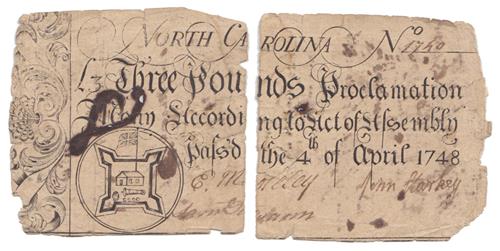 North Carolina No 1740
L3 Three Pounds Proclamation
According to Act of Assembly
Pass'd the 4th of April 1748
John Starkey